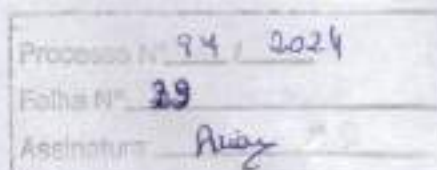 Processo Nº 94 / 2024
Folha Nº 39
Assinatura